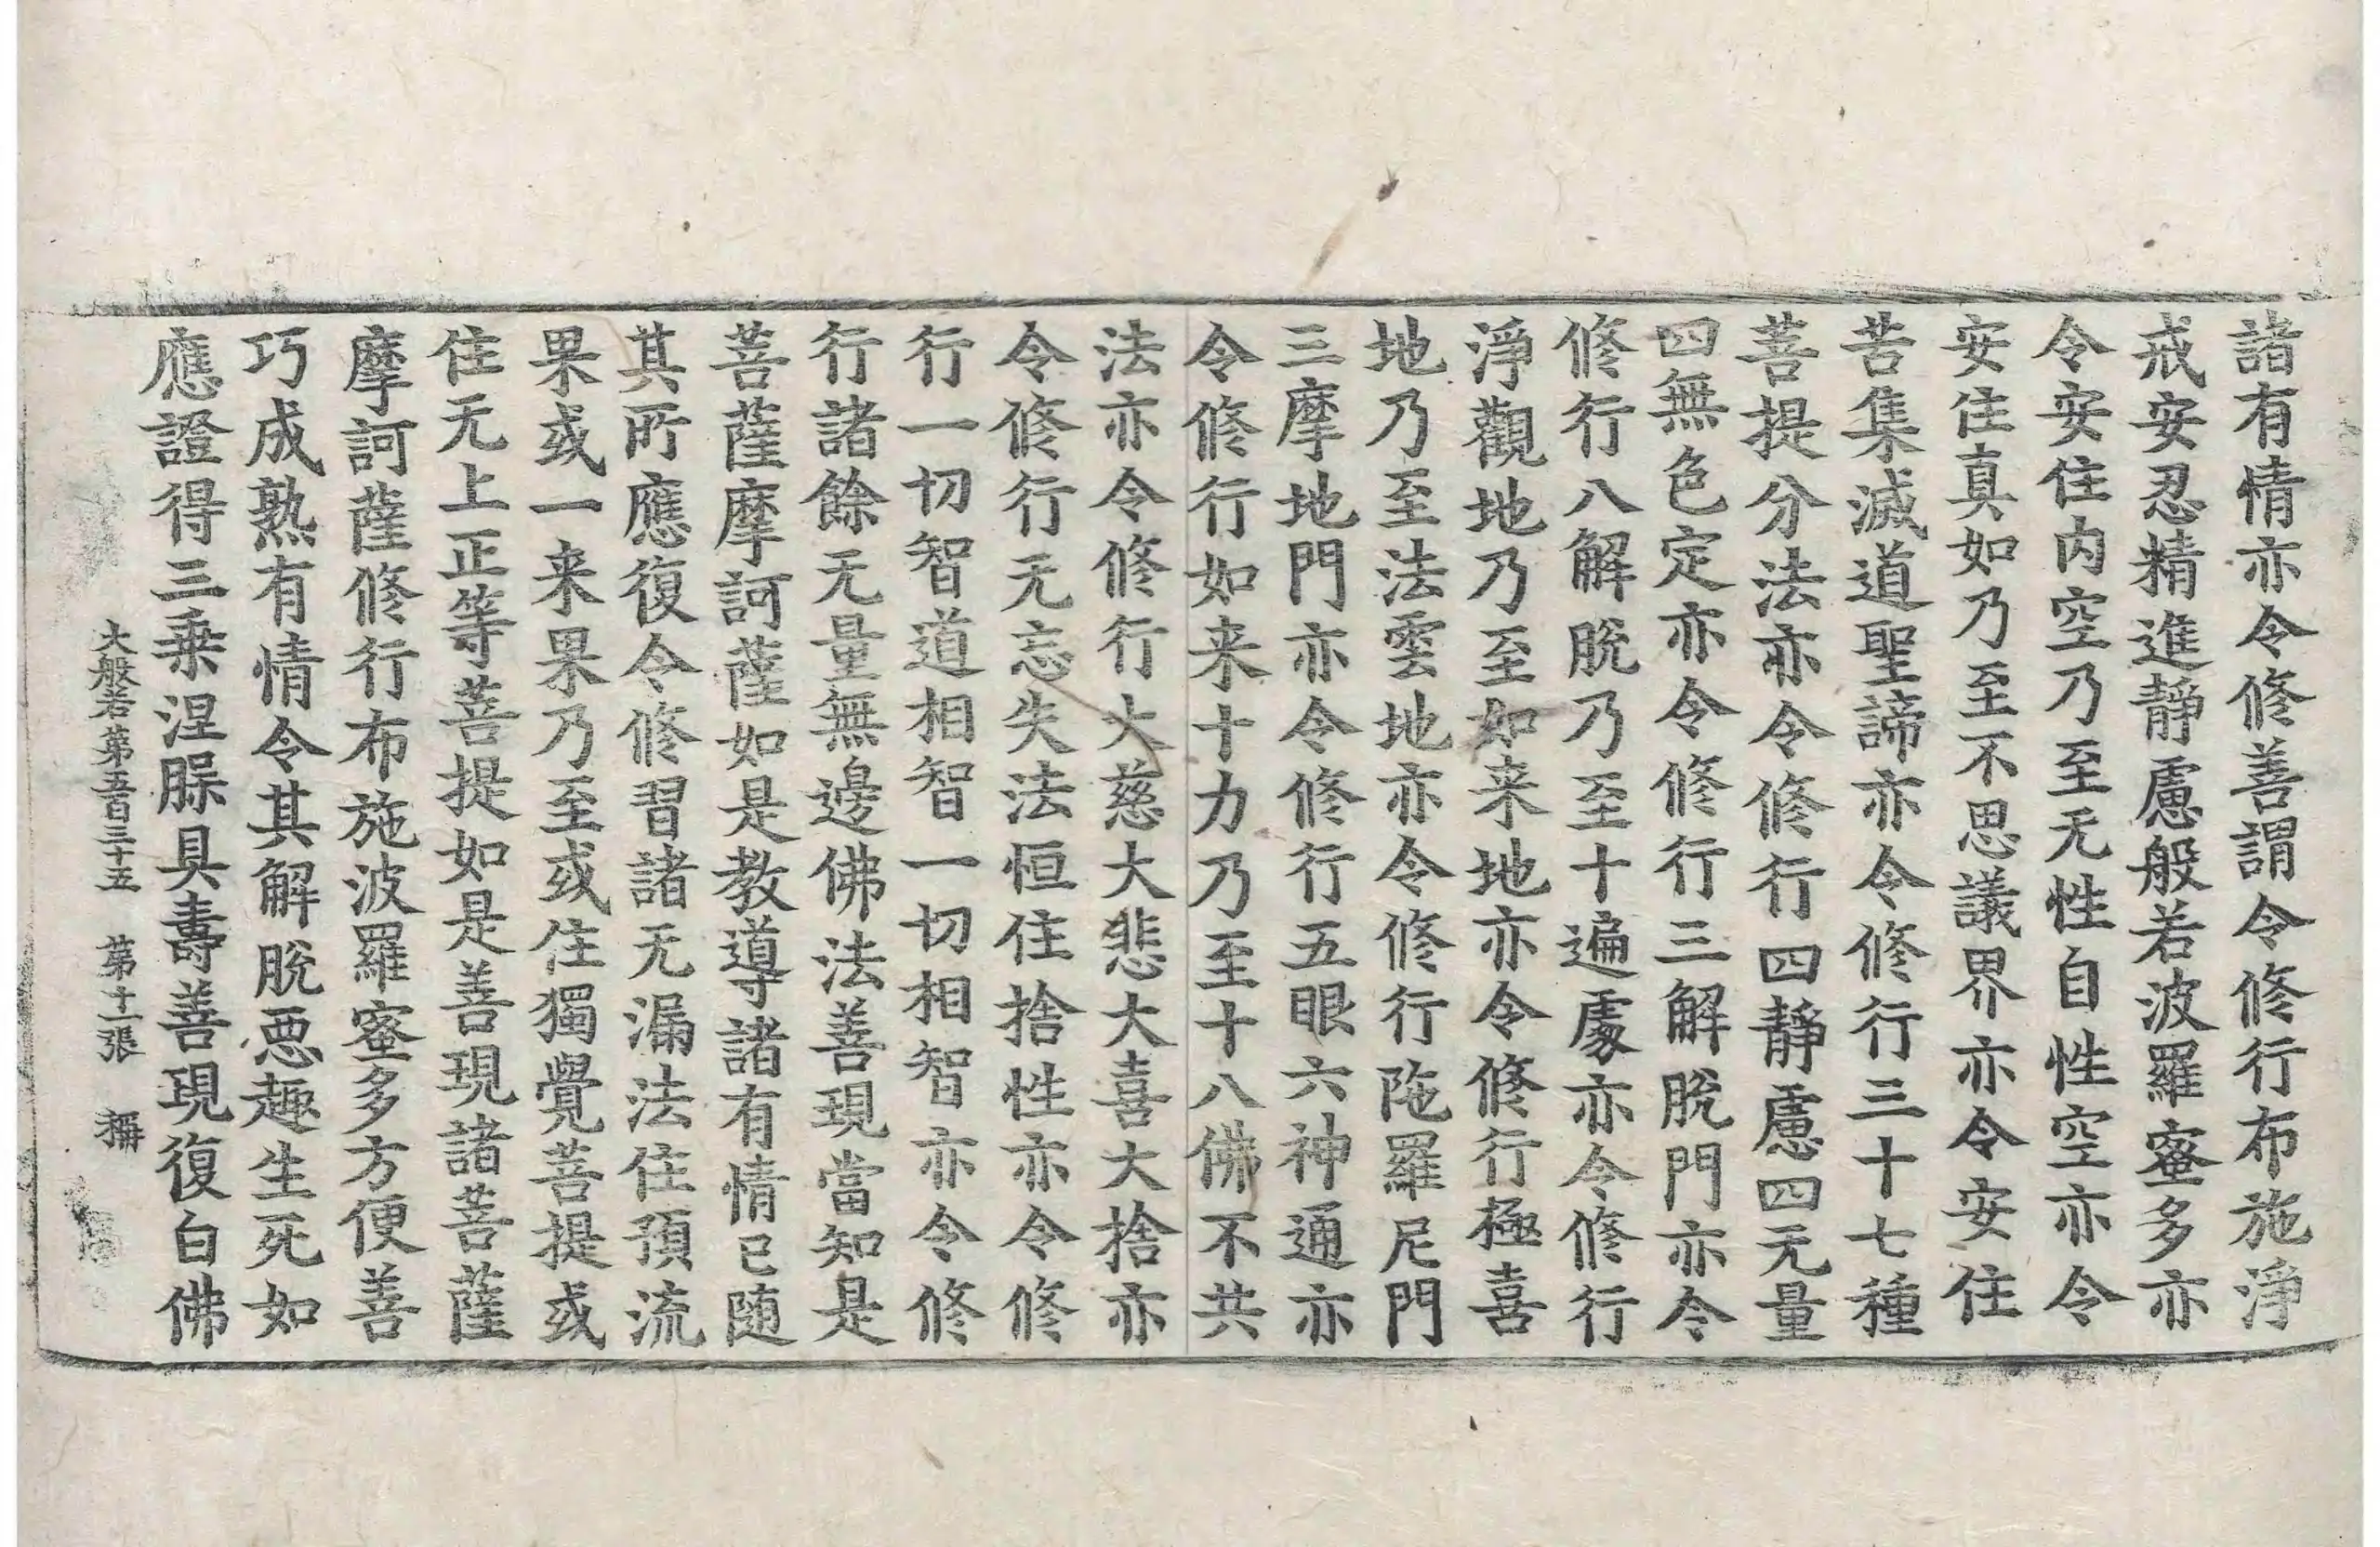 諸有情亦令修善謂令修行布施淨
戒安忍精進靜慮般若波羅蜜多亦
令安住内空乃至无性自性空亦令
安住真如乃至不思議界亦令安住
苦集滅道聖諦亦令修行三十七種
菩提分法亦令修行四靜慮四无量
四無色定亦令修行三解脫門亦令
修行八解脫乃至十遍處亦令修行
淨觀地乃至如来地亦令修行極喜
地乃至法雲地亦令修行陁羅尼門
三摩地門亦令修行五眼六神通亦
令修行如来十力乃至十八佛不共
法亦令修行大慈大悲大喜大捨亦
令修行无忘失法恒住捨性亦令修
行一切智道相智一切相智亦令修
行諸餘无量無邊佛法善現當知是
菩薩摩訶薩如是教導諸有情已随
其所應復令修習諸无漏法住預流
果或一来果乃至或住獨覺菩提或
住无上正等菩提如是善現諸菩薩
摩訶薩修行布施波羅蜜多方便善
巧成熟有情令其解脫惡趣生死如
應證得三乗涅槃具壽善現復白佛
大般若第五百三十五 第十一張 稱